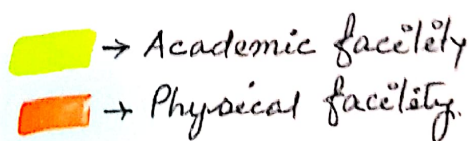 → Academic facility
→ Physical facility.